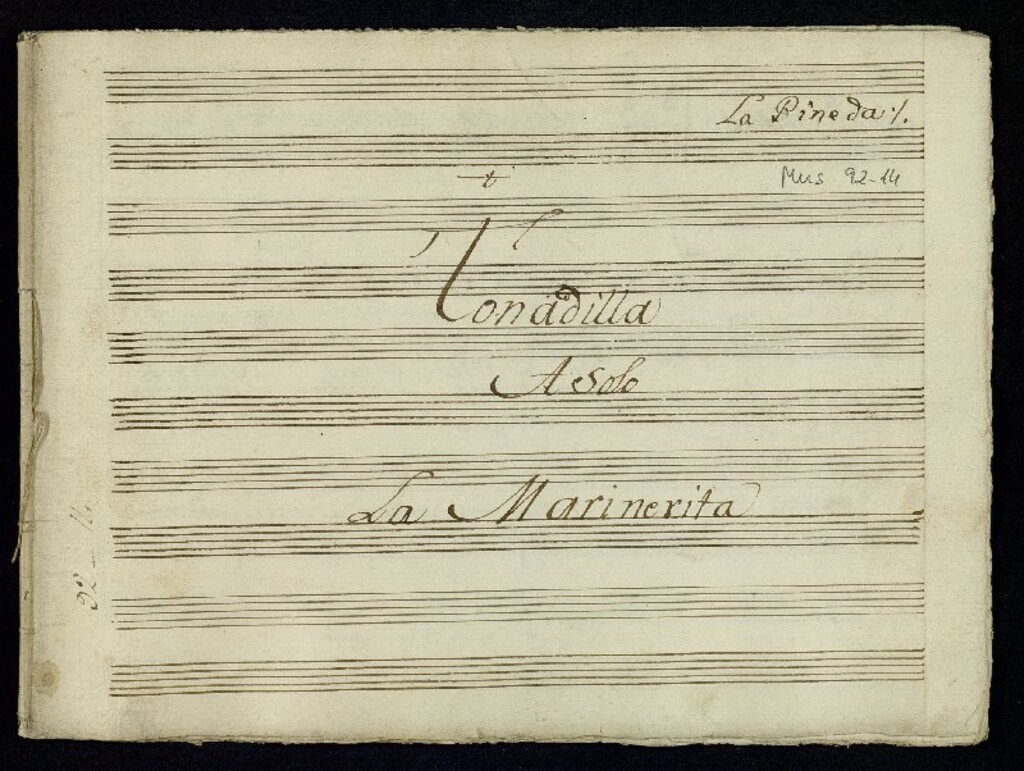 La Pineda ·/.
Mus 92-14
t
Tonadilla
A Solo
La Marinerita
92-14